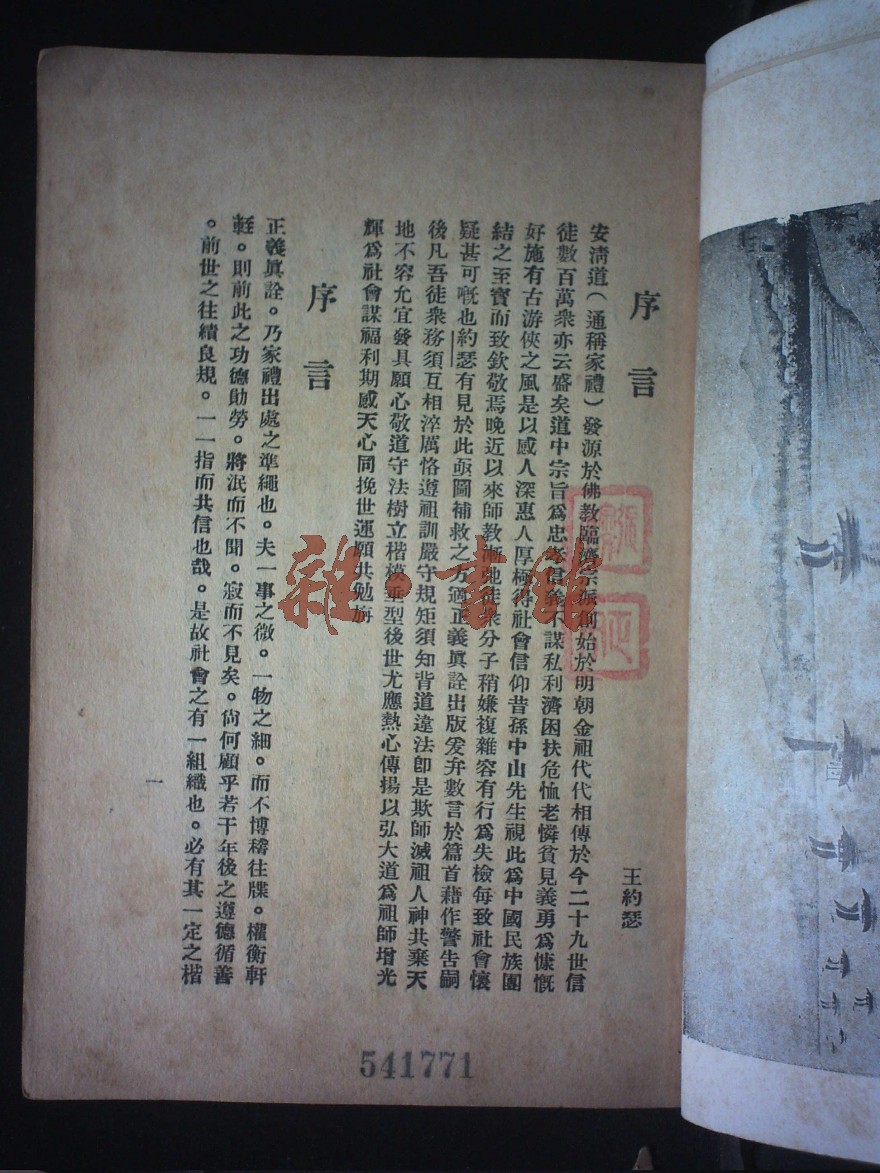 序言
王約瑟
安淸道(通稱家禮)發源於佛敎臨濟宗派創始於明朝金祖代代相傳於今二十九世信
徒數百萬衆亦云盛矣道中宗旨爲忠孝信義不謀私利濟困扶危恤老憐貧見義勇爲慷慨
好施有古游俠之風是以感人深惠人厚極得社會信仰昔孫中山先生視此爲中國民族團
結之至寶而致欽敬焉晚近以來師敎漸弛徒衆分子稍嫌複雜容有行爲失檢每致社會懷
疑甚可慨也約瑟有見於此亟圖補救之方適正義眞詮出版爰弁數言於篇首藉作警告嗣
後凡吾徒衆務須互相淬厲恪遵祖訓嚴守規矩須知背道違法卽是欺師滅祖人神共棄天
地不容允宜發具願心敬道守法樹立楷模垂型後世尤應熱心傳揚以弘大道爲祖師增光
輝爲社會謀福利期感天心同挽世運願共勉旃
序言
正義眞詮。乃家禮出處之準繩也。夫一事之微。一物之細。而不博稽往牒。權衡軒
輊。則前此之功德勛勞。將泯而不聞。寂而不見矣。尙何顧乎若干年後之遵德循善
。前世之往績良規。一一指而共信也哉。是故社會之有一組織也。必有其一定之楷
一
541771
雜·書館